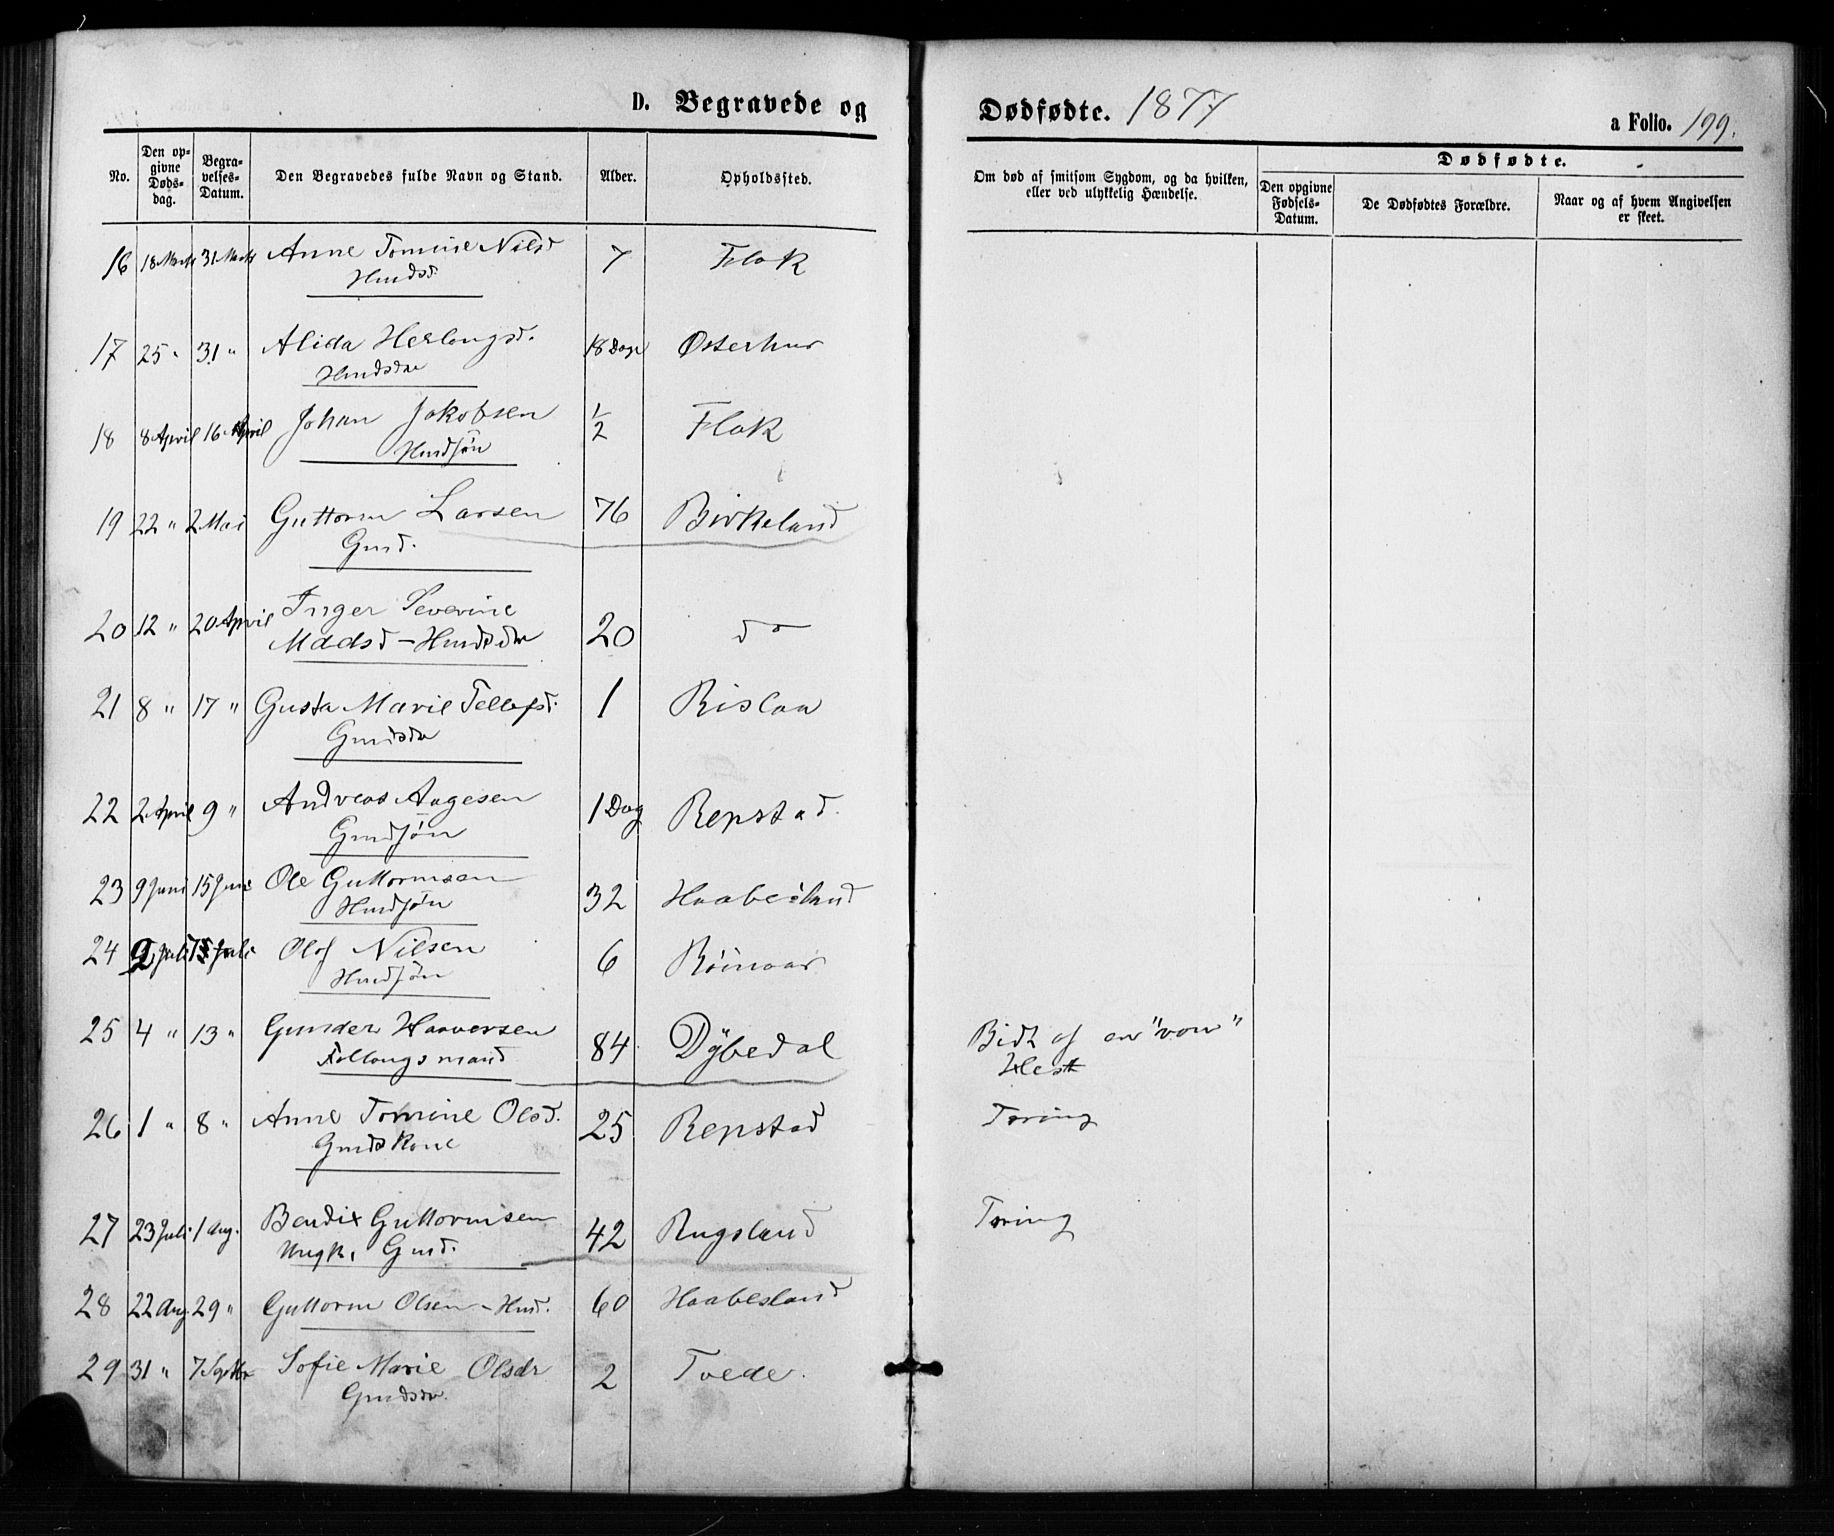 D. Begravede og Dødfødte. 1877
a Folio. 199.
No.
Den opgivne Dødsdag.
Begravelses-Datum.
Den Begravedes fulde Navn og Stand.
Alder.
Opholdssted.
Om død af smitsom Sygdom, og da hvilken, eller ved ulykkelig Hændelse.
Dødfødte.
Den opgivne Fødsels-Datum.
De Dødfødtes Forældre.
Naar og af hvem Angivelsen er skeet.
16 18 Marts 31 Marts Anne Tomine Nilsd 7 Flak
Hmdsd.
17 25 " 31 " Alida Herlougsd. 18 Dage Østerhus
Hmdsdtr
18 8 April 16 April Johan Jakobsen 1/2 Flak
Hmdsøn
19 22 " 2 Mai Guttorm Larsen 76 Birkeland
Gmd.
20 12 " 20 April Inger Severine
Madsd - Hmdsdtr 20 do
21 8 " 17 " Gusta Marie Tellefsd. 1 Rislaa
Gmdsdtr
22 2 April 9 " Andreas Aagesen 1 Dag Repstad.
Gmdsøn
23 9 Juni 15 Juni Ole Guttormsen 32 Haabesland
Hmdsøn
24 2 Juli Juli Olaf Nilsen 6
Hmdsøn
25 4 " 13 " Gunder Haaversen 84 Dÿbedal Bidt af en "von"
Follougsmand Hest
26 1 " 8 " Anne Tomine Olsd. 25 Repstad Tæring
Gmdskone
27 23 Juli 1 Aug. Bendix Guttormsen 42 Rugsland Tæring
Ungk. Gmd.
28 22 Aug. 29 " Guttorm Olsen - Hmd. 60 Haabesland
29 31 " 7 Septbr Sofie Marie Olsdr 2 Tvede.
Gmdsdtr.